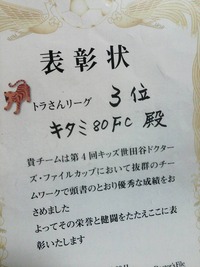 表彰状
トラさんリーグ 3位
キタミ80FC 殿
貴チームは第4回キッズ世田谷ドクター
ズ・ファイルカップにおいて抜群のチー
ムワークで頭書のとおり優秀な成績をお
さめました
よってその栄誉と健闘をたたえここに表
彰いたします